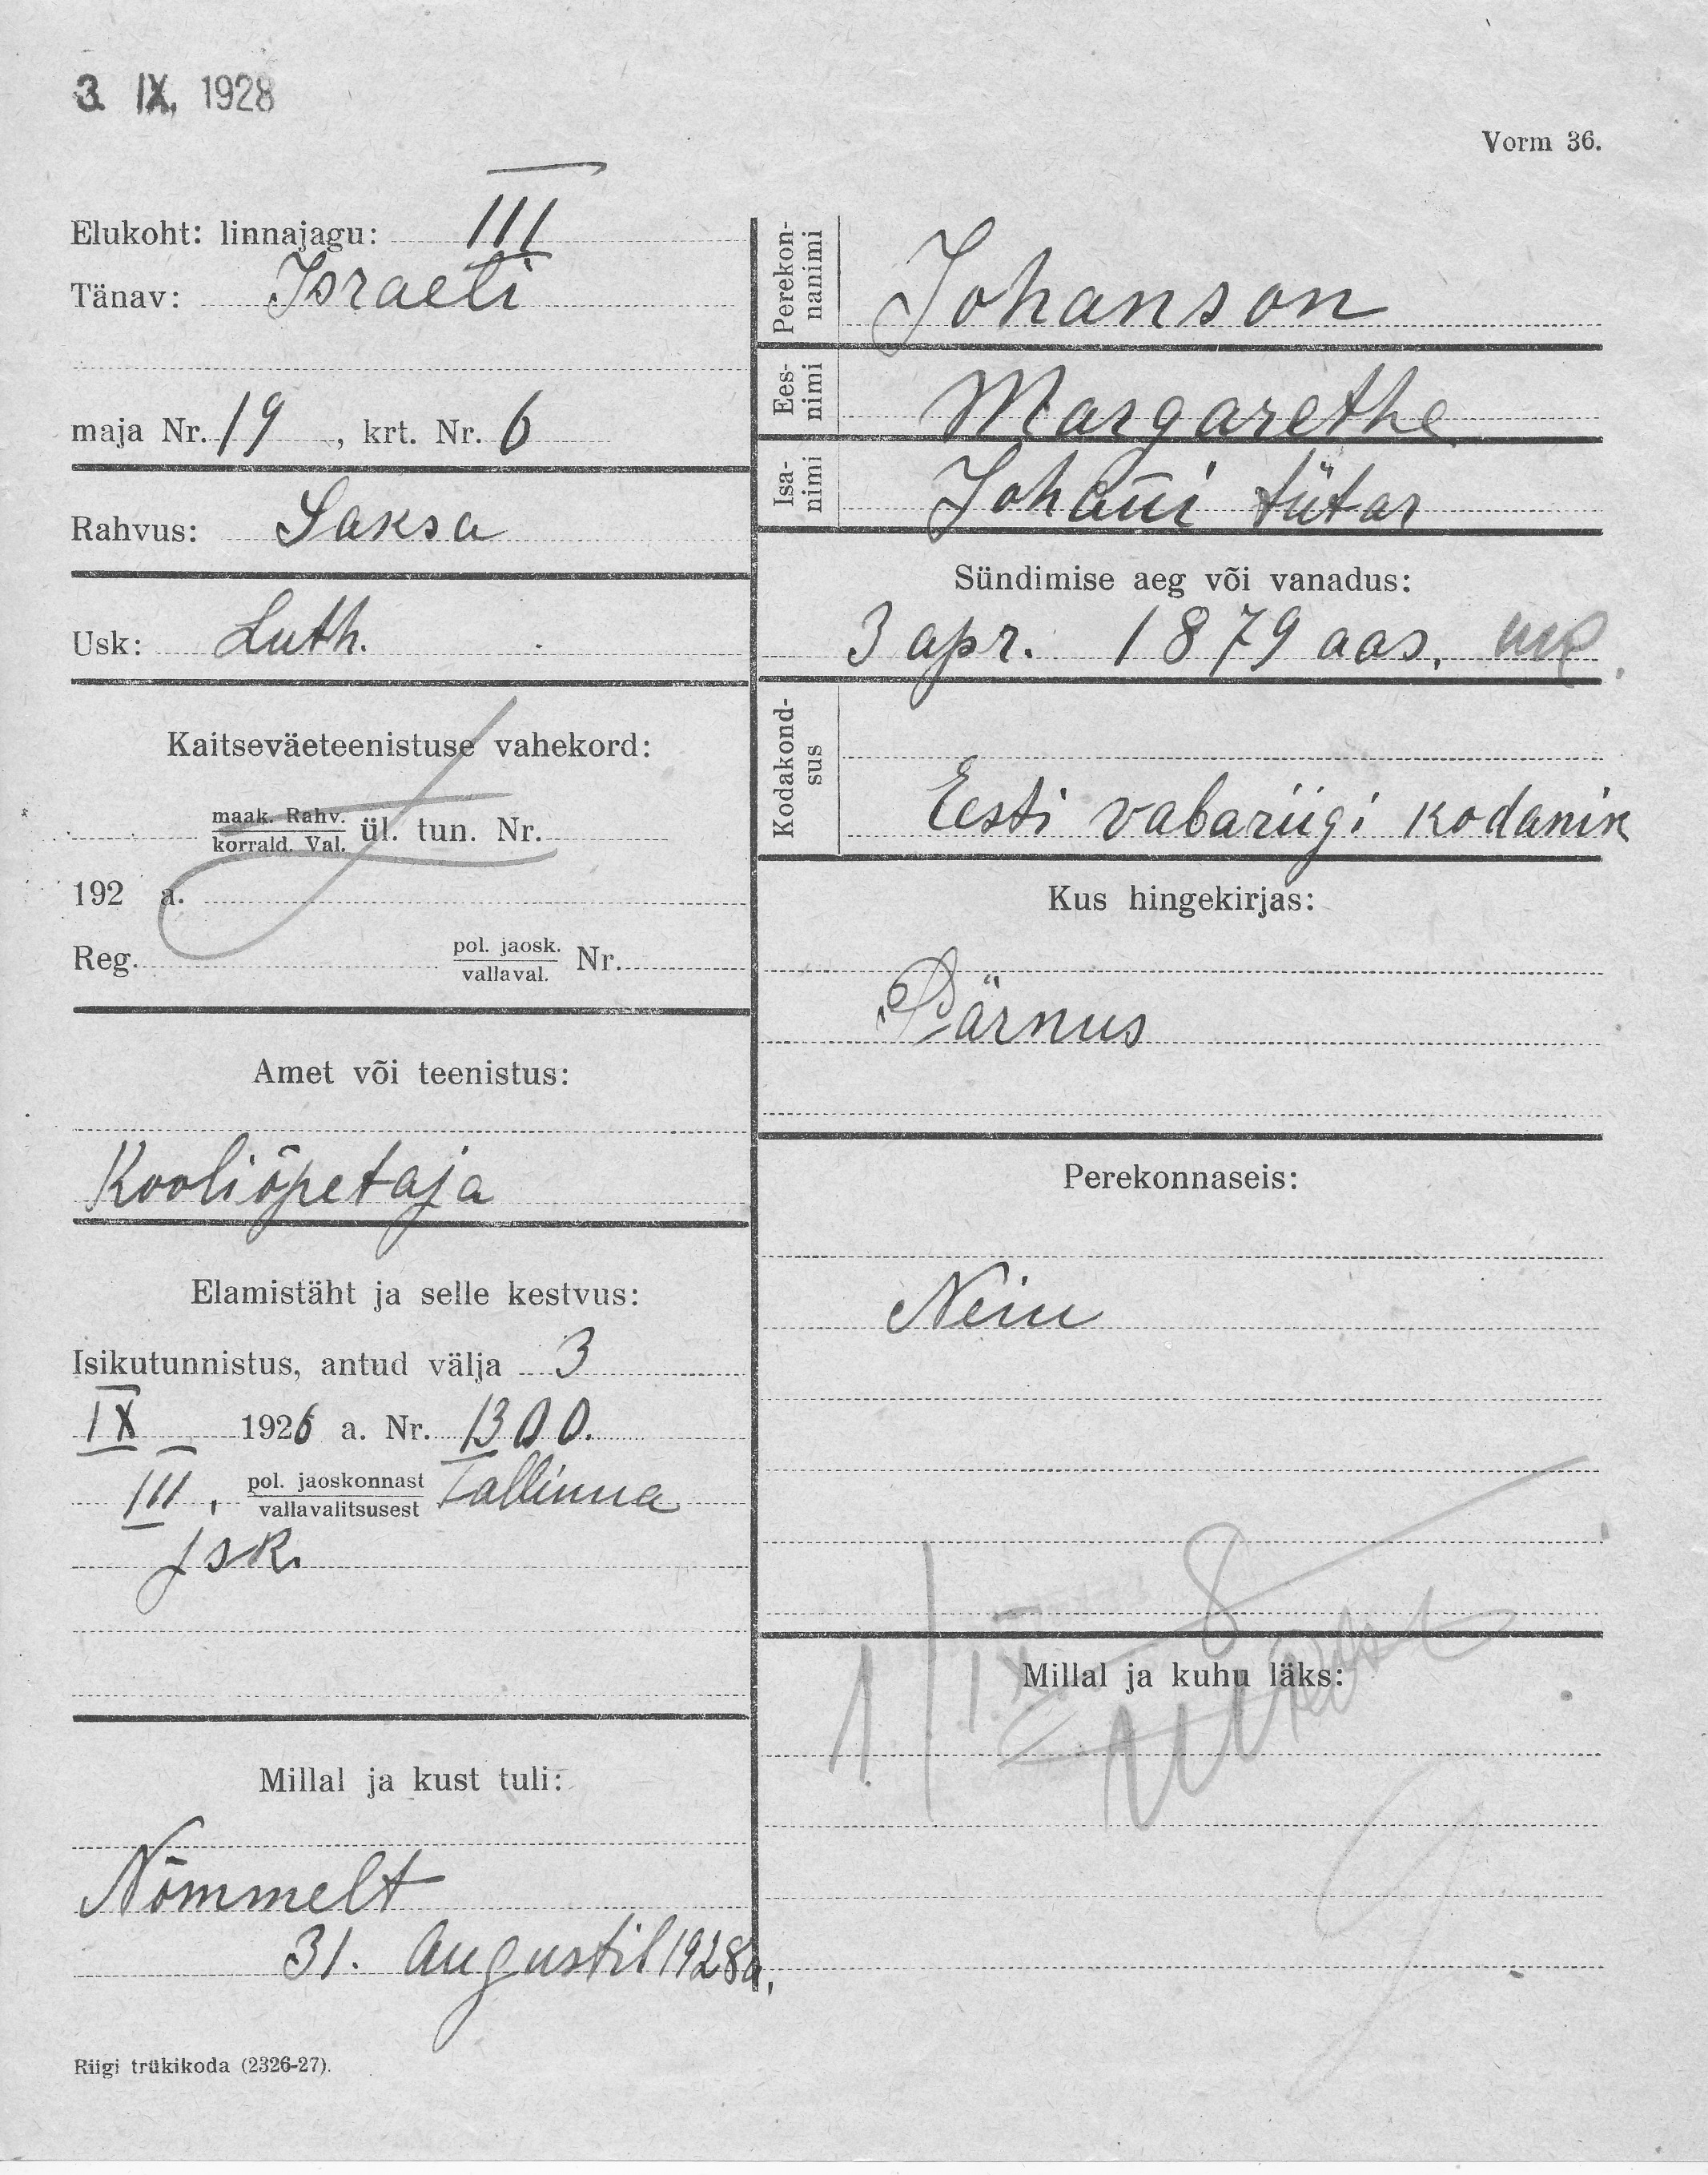 3. IX. 1928
Vorm 36.
Elukoht: linnajagu: III
Tänav: Israeli
maja Nr. 19, krt. Nr. 6
Rahvus: Saksa
Usk: Luth.
Kaitseväeteenistuse vahekord:
maak. Rahv.
korrald. Val. ül. tun. Nr.
192 a.
Reg. pol. jaosk. Nr.
vallaval.
Amet või teenistus:
Kooliõpetaja
Elamistäht ja selle kestvus:
Isikutunnistus, antud välja 3
IX 1926 a. Nr. 1300.
III, pol. jaoskonnast Tallinna
vallavalitsusest
jsk.
Millal ja kust tuli:
Nõmmelt
31. Augustil 1928a.
Riigi trükikoda (2326-27).
Perekon-
nanimi
Johanson
Ees-
nimi
Margarethe
Isa-
nimi
Johani tütar
Sündimise aeg või vanadus:
3 apr. 1879 aas.
Kodakond-
sus
Eesti vabariigi kodanik
Kus hingekirjas:
Pärnus
Perekonnaseis:
Neiu
Millal ja kuhu läks: